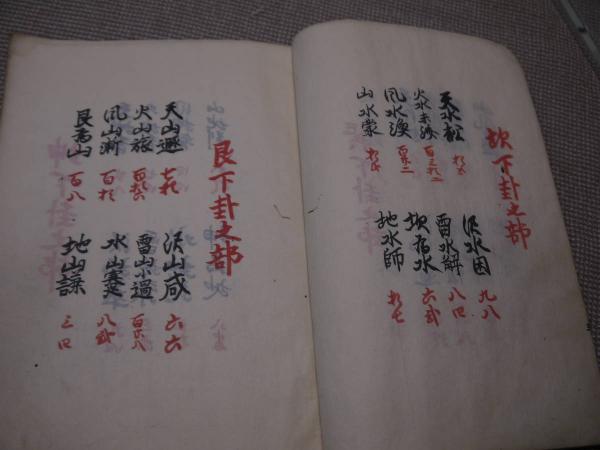 坎下卦之部
天水訟
沢水困 九八
火水未済 百三十二
雷水解 八口
風水渙 百廿二
坎為水 六弐
山水蒙 十七
地水師 十七
艮下卦之部
天山遯 七九
沢山咸 六六
火山旅
雷山小過 百六八
風山漸 百十
水山蹇 八弐
艮為山 百八
地山謙 三口